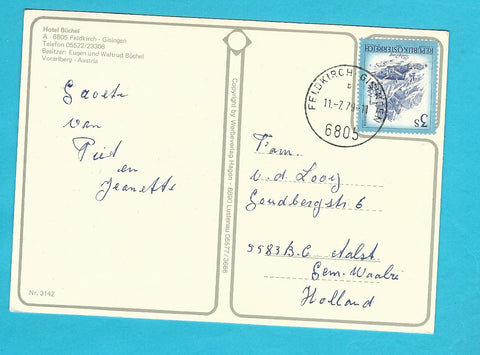 Hotel Büchel
A - 6805 Feldkirch - Gisingen
Telefon 05522/23306
Besitzer: Eugen und Waltrud Büchel
Vorarlberg - Austria
Groeten
van
Piet
en
Jeanette
Nr. 3142
Copyright by Werbeverlag Hagen · 6890 Lustenau 05577/3668
FELDKIRCH-GISINGEN
b
11.-7.79-11
6805
REPUBLIK ÖSTERREICH
3 S
Fam.
v.d. Looy
Goudbergstr 6
5583 B.C. Aalst
Gem. Waalre
Holland